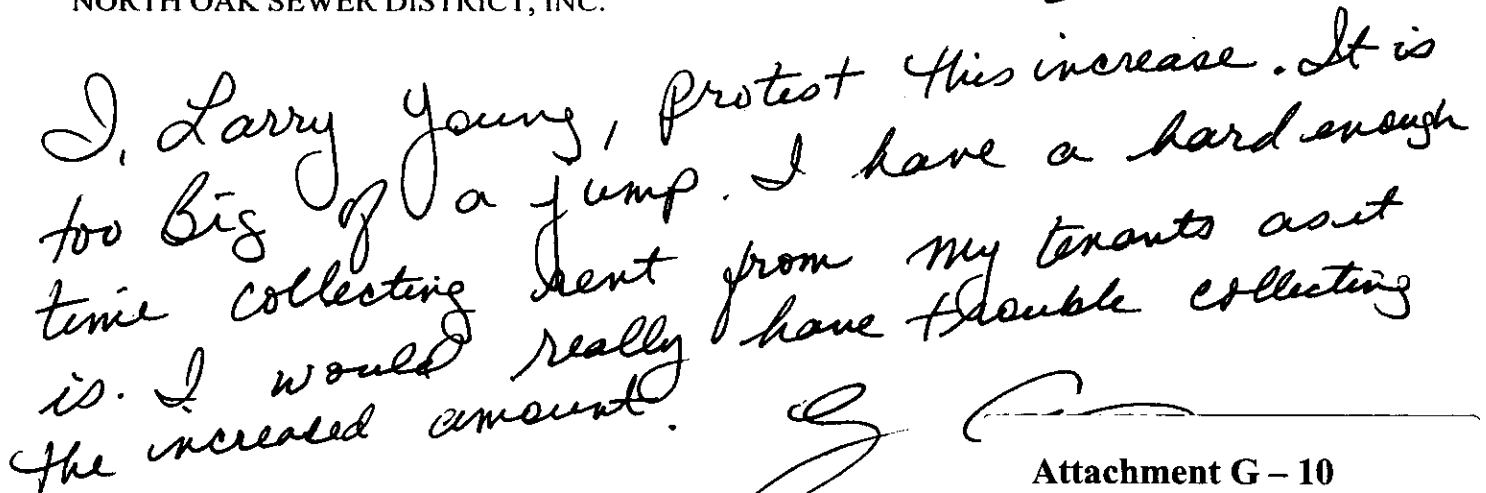 NORTH OAK SEWER DISTRICT, INC.
I, Larry Young, Protest this increase. It is
too Big of a jump. I have a hard enough
time collecting rent from my tenants as it
is. I would really have trouble collecting
the increased amount.
Attachment G – 10